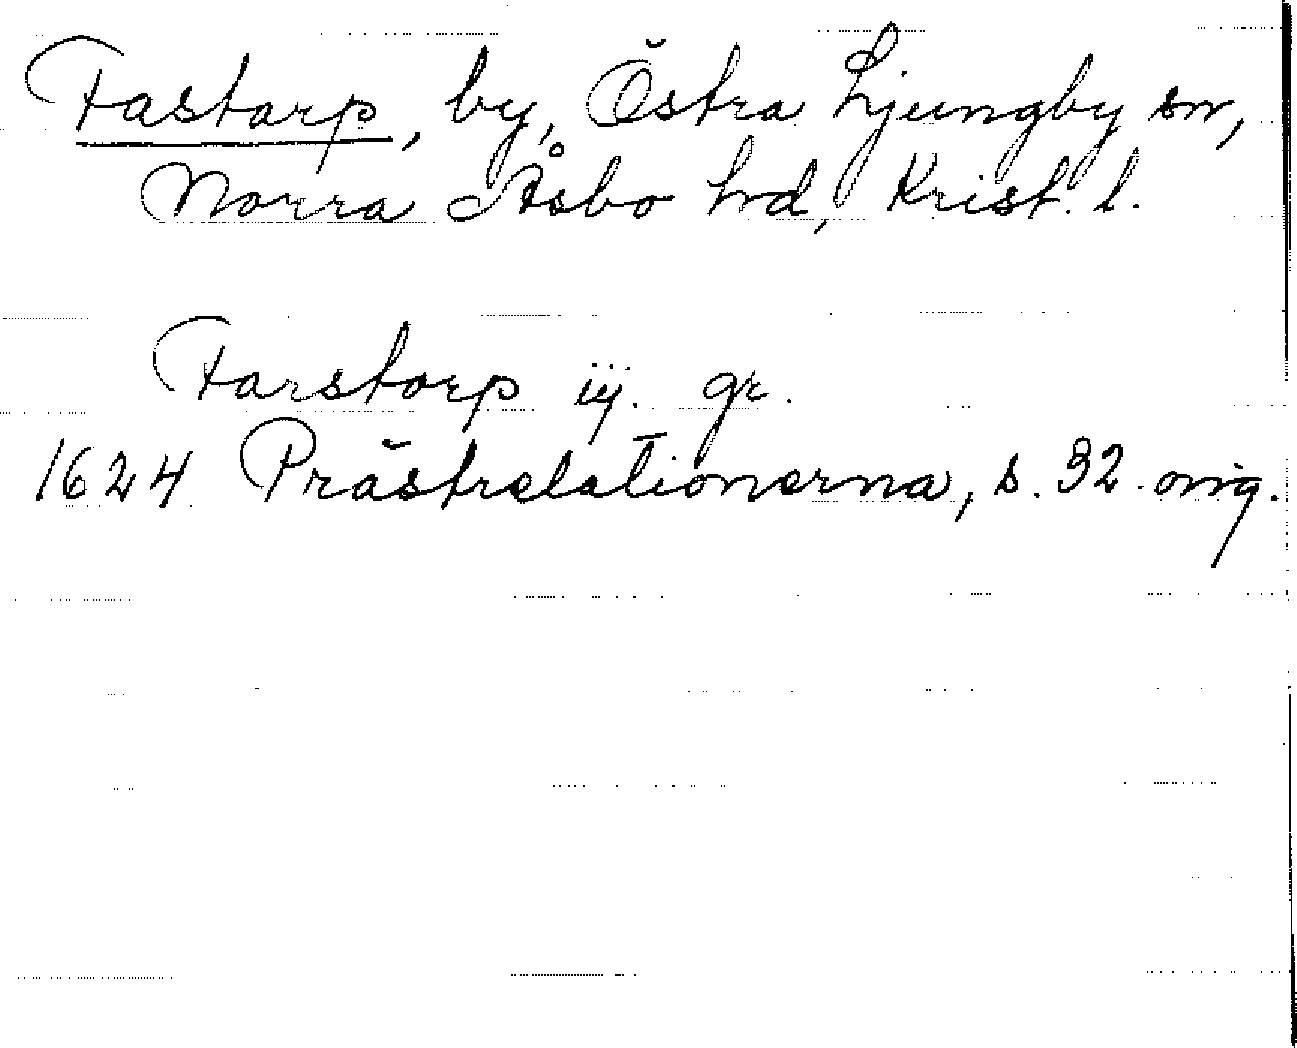 Fastarp, by, Östra Ljungby sn,
Norra Åsbo hrd, Krist. l.
Farstorp iij. gr.
1624 Prästrelationerna, s. 32 orig.